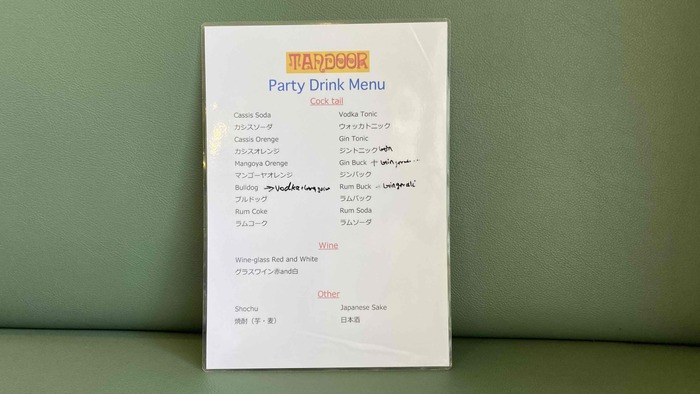 TANDOOR
Party Drink Menu
Cock tail
Cassis Soda
カシスソーダ
Cassis Orenge
カシスオレンジ
Mangoya Orenge
マンゴーヤオレンジ
Bulldog → Vodka+
ブルドッグ
Rum Coke
ラムコーク
Vodka Tonic
ウォッカトニック
Gin Tonic
ジントニック
Gin Buck +
ジンバック
Rum Buck
ラムバック
Rum Soda
ラムソーダ
Wine
Wine-glass Red and White
グラスワイン赤and白
Other
Shochu
焼酎（芋・麦）
Japanese Sake
日本酒